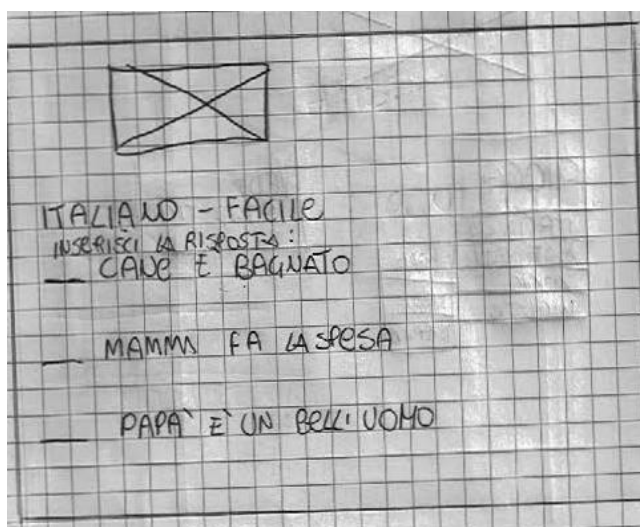 ITALIANO - FACILE
INSERISCI LA RISPOSTA:
__ CANE È BAGNATO
__ MAMMA FA LA SPESA
__ PAPA' E' UN BELL'UOMO